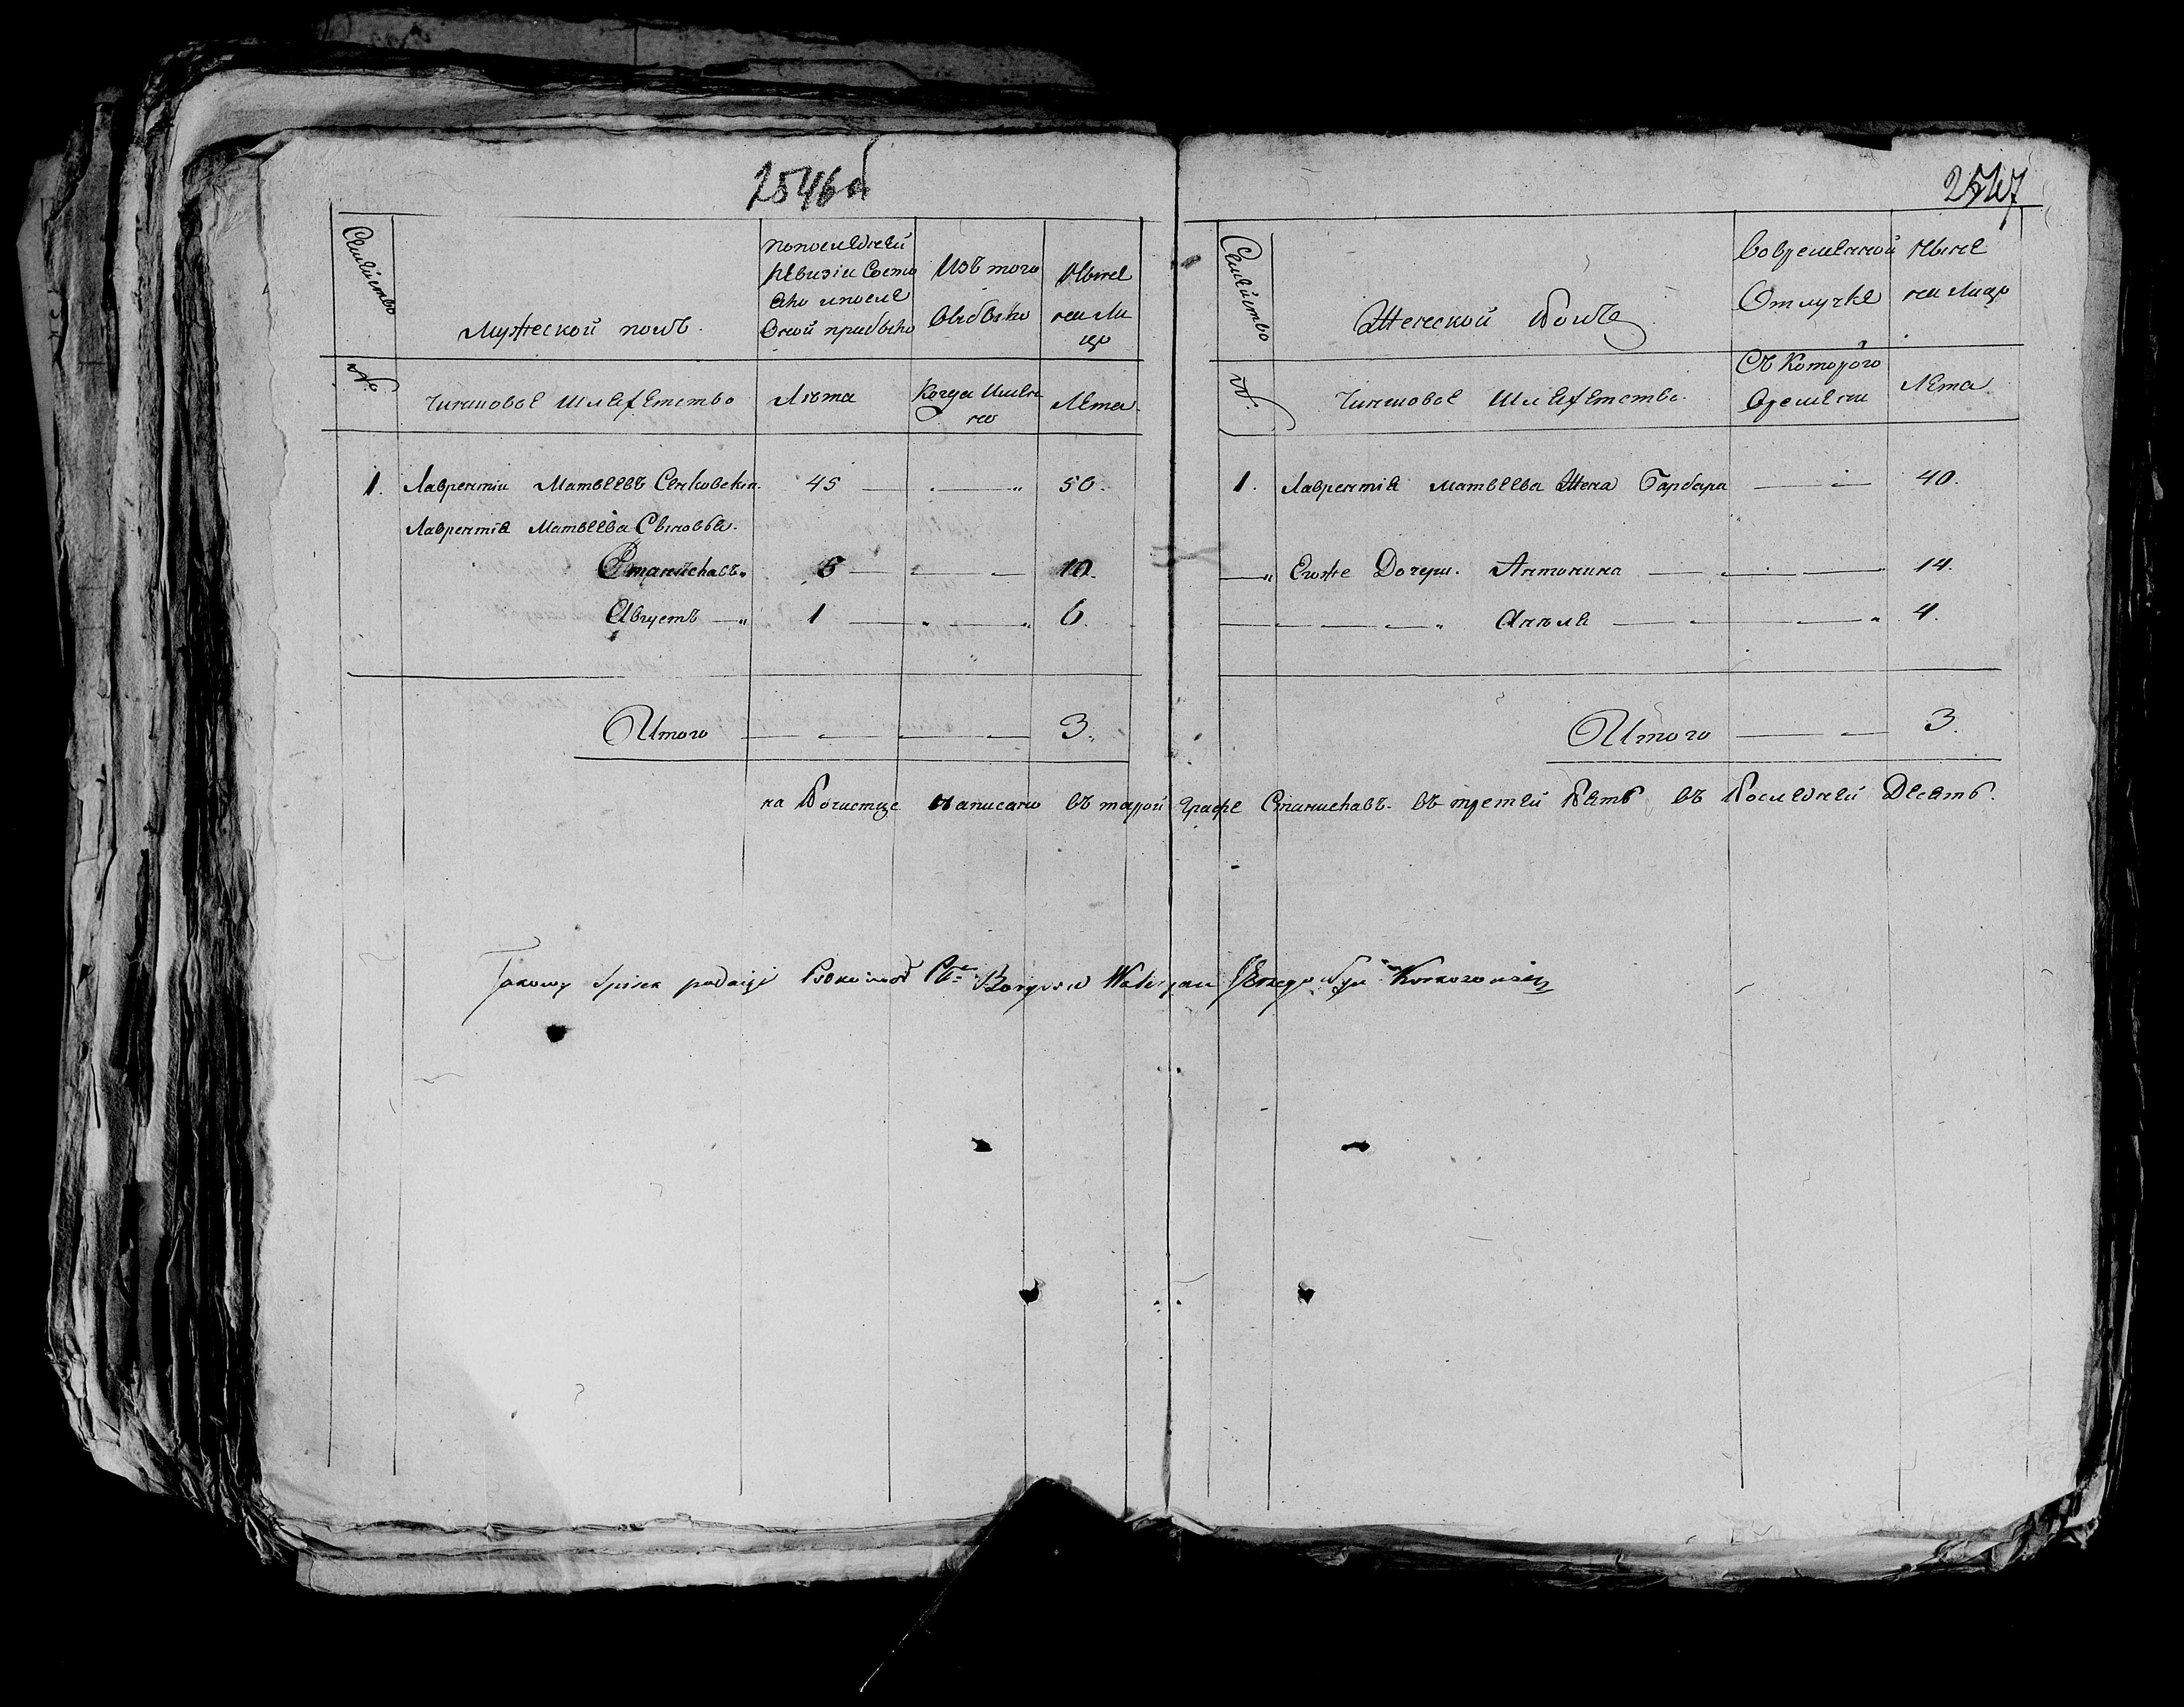 2546об
Семейство
Мужеской полъ.
попоследней
ревизiи Состо
яло ипосле
Оной прибыло
Изъ того
выбыло
Ныне
на Ли
цо
№
Чиншовое Шляхетство
Лѣта
Когда Имен
но
Лета.
1. Лаврентiи Матвеевъ Сенковскiи. 45 50.
Лаврентiя Матвеева Сыновья.
Станиславъ 5 10.
Августъ 1 6.
Итого 3.
2547
Семейство
Женской Полъ
Вовременной
Отлучке
Ныне
на Лицо
№.
Чиншовое Шляхетство.
Съ Которого
Времени
Лета
1. Лаврентiя Матвеева Жена Барбара 40.
Егоже Дочери. Антонина 14.
Анѣля 4.
Итого 3.
на Почистце Написано въ тарой графе Станиславъ. въ третей Пять въ Последней Десять.
Takowy Spisek podaię Walerjan Jerzego Syn